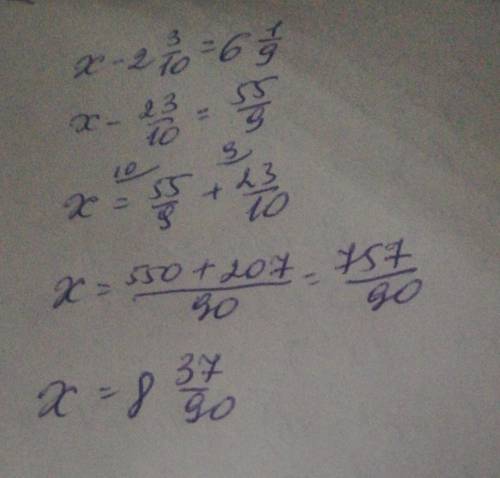 x - 2 3/10 = 6 1/9
x - 23/10 = 55/9
x = 10⁄ 55/9 + 9⁄ 23/10
x = 550 + 207/90 = 757/90
x = 8 37/90